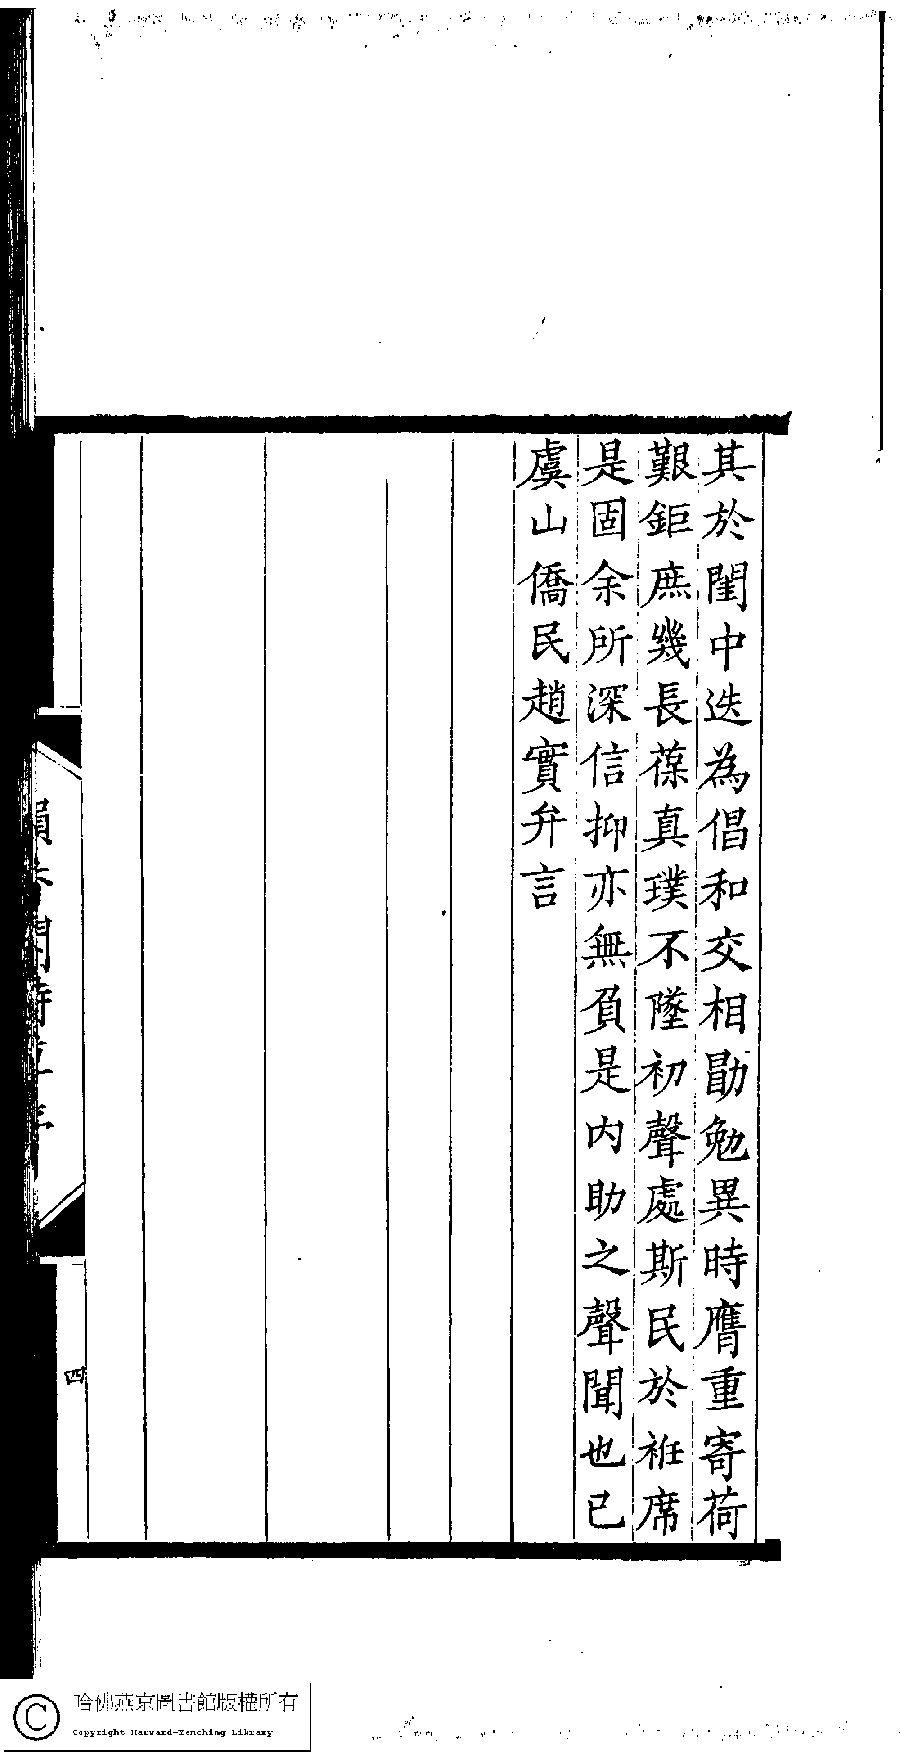 其於閨中迭為倡和交相勖勉異時膺重寄荷
艱鉅庶幾長葆真璞不墜初聲處斯民於袵席
是固余所深信抑亦無負是內助之聲聞也已
虞山僑民趙實弁言
四
哈佛燕京圖書館版權所有
Copyright Harvard-Yenching Library